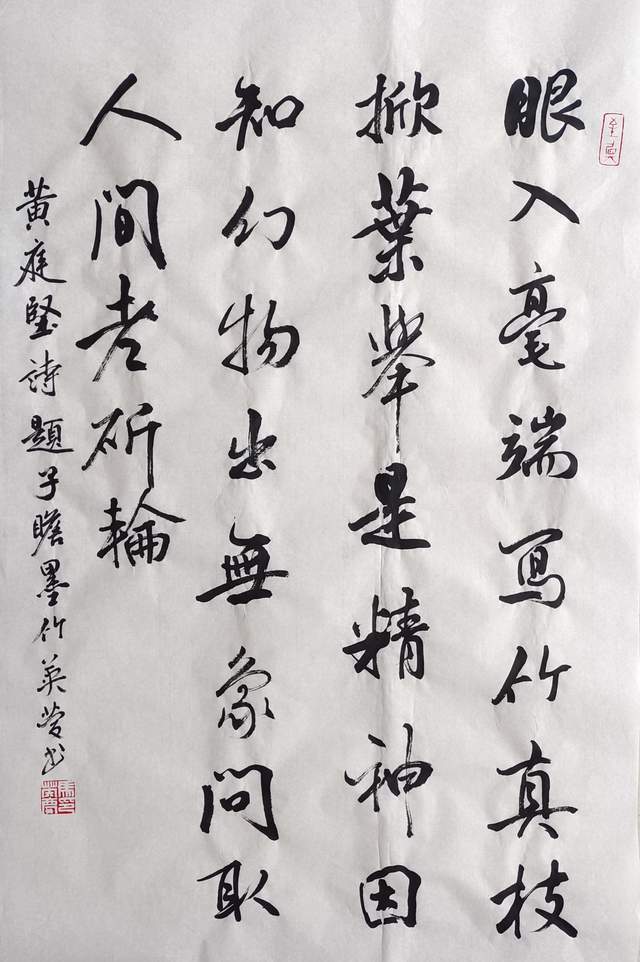 眼入毫端寫竹真枝
掀葉舉是精神因
知幻物出無象問取
人間老斫輪
黃庭堅詩題子瞻墨竹英瑩书